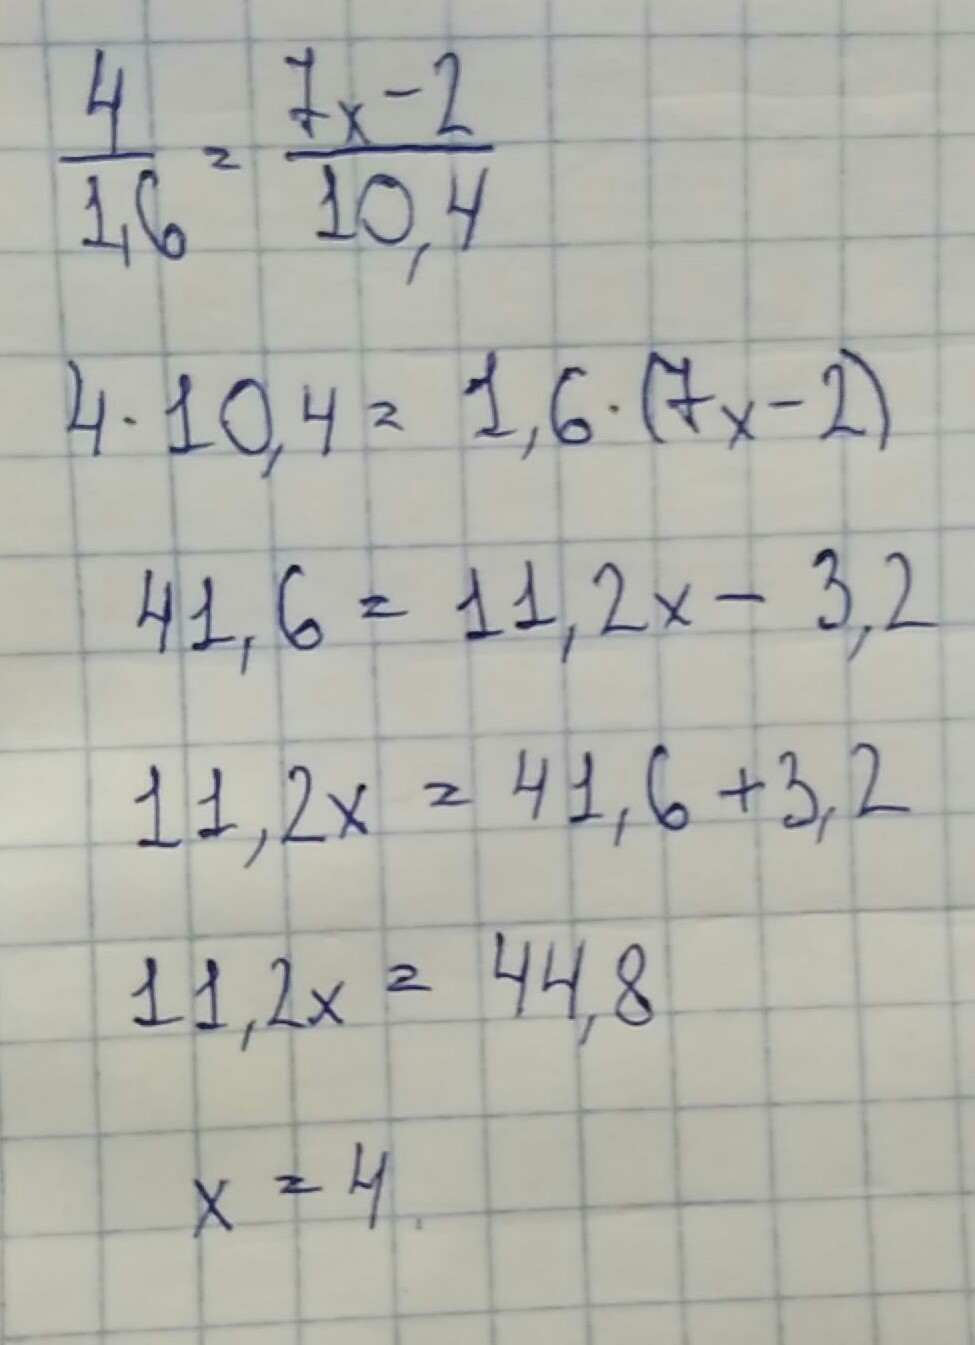 4/1,6 = 7x-2/10,4
4·10,4 = 1,6·(7x-2)
41,6 = 11,2x - 3,2
11,2x = 41,6 + 3,2
11,2x = 44,8
x = 4